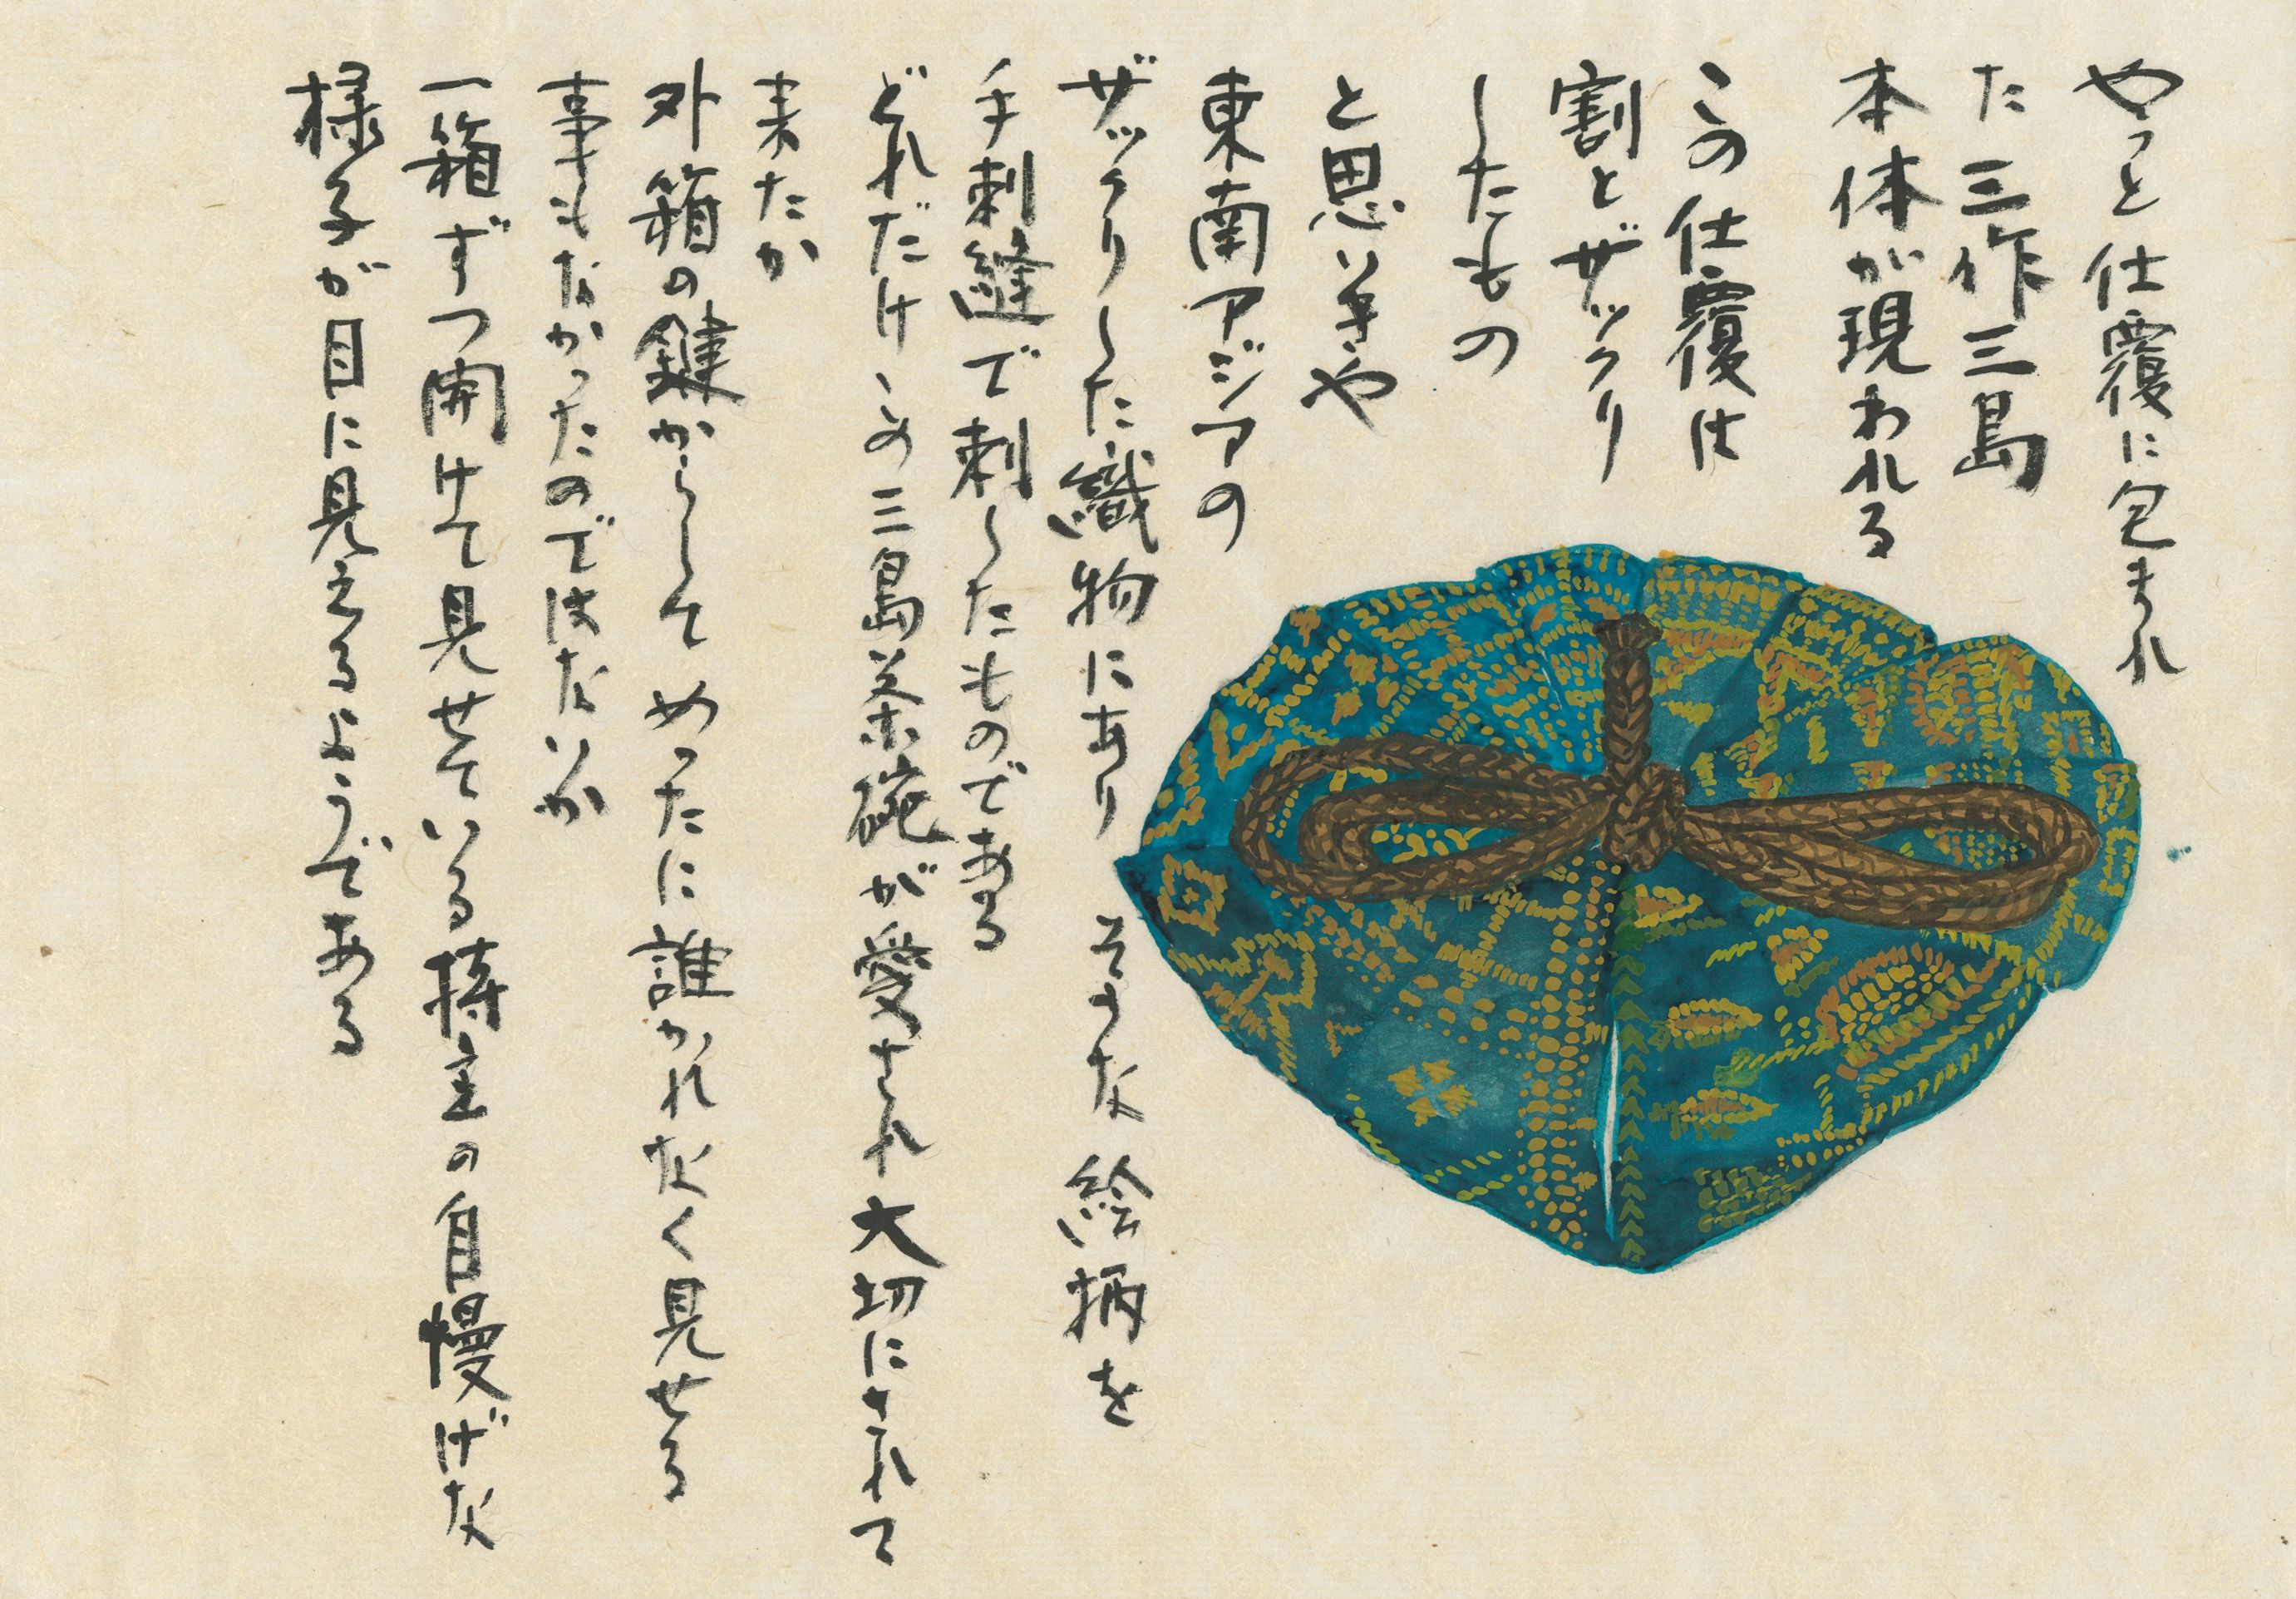 やっと仕覆に包まれ
た三作三島
本体が現われる
この仕覆は
割とザックリ
したもの
と思いきや
東南アジアの
ザックリした織物にあり そうな絵柄を
手刺縫で刺したものである
どれだけこの三島茶碗が愛され大切にされて
来たか
外箱の鍵からして めったに誰かれなく見せる
事もなかったのではないか
一箱ずつ開けて見せている持主の自慢げな
様子が目に見えるようである